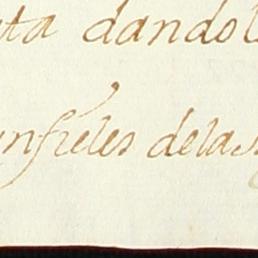 ta dandol
infieles delas